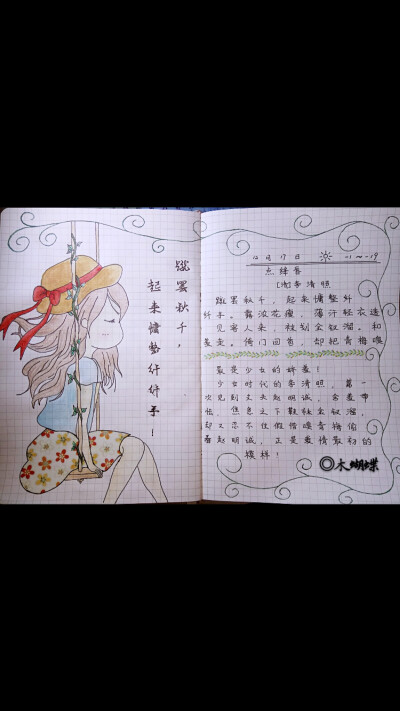 蹴罢秋千，
起来慵整纤纤手！
12月17日 -1～-19
点绛唇
[宋]李清照
蹴罢秋千，起来慵整纤
纤手。露浓花瘦，薄汗轻衣透
见客入来，袜刬金钗溜。和
羞走。倚门回首，却把青梅嗅
最是少女的娇羞！
少女时代的李清照，第一
次见到丈夫赵明诚，含羞带
怯，焦急之下鞋袜金钗溜，
却又忍不住假借嗅青梅偷
看赵明诚，正是爱情最初的
模样！
木蝴蝶